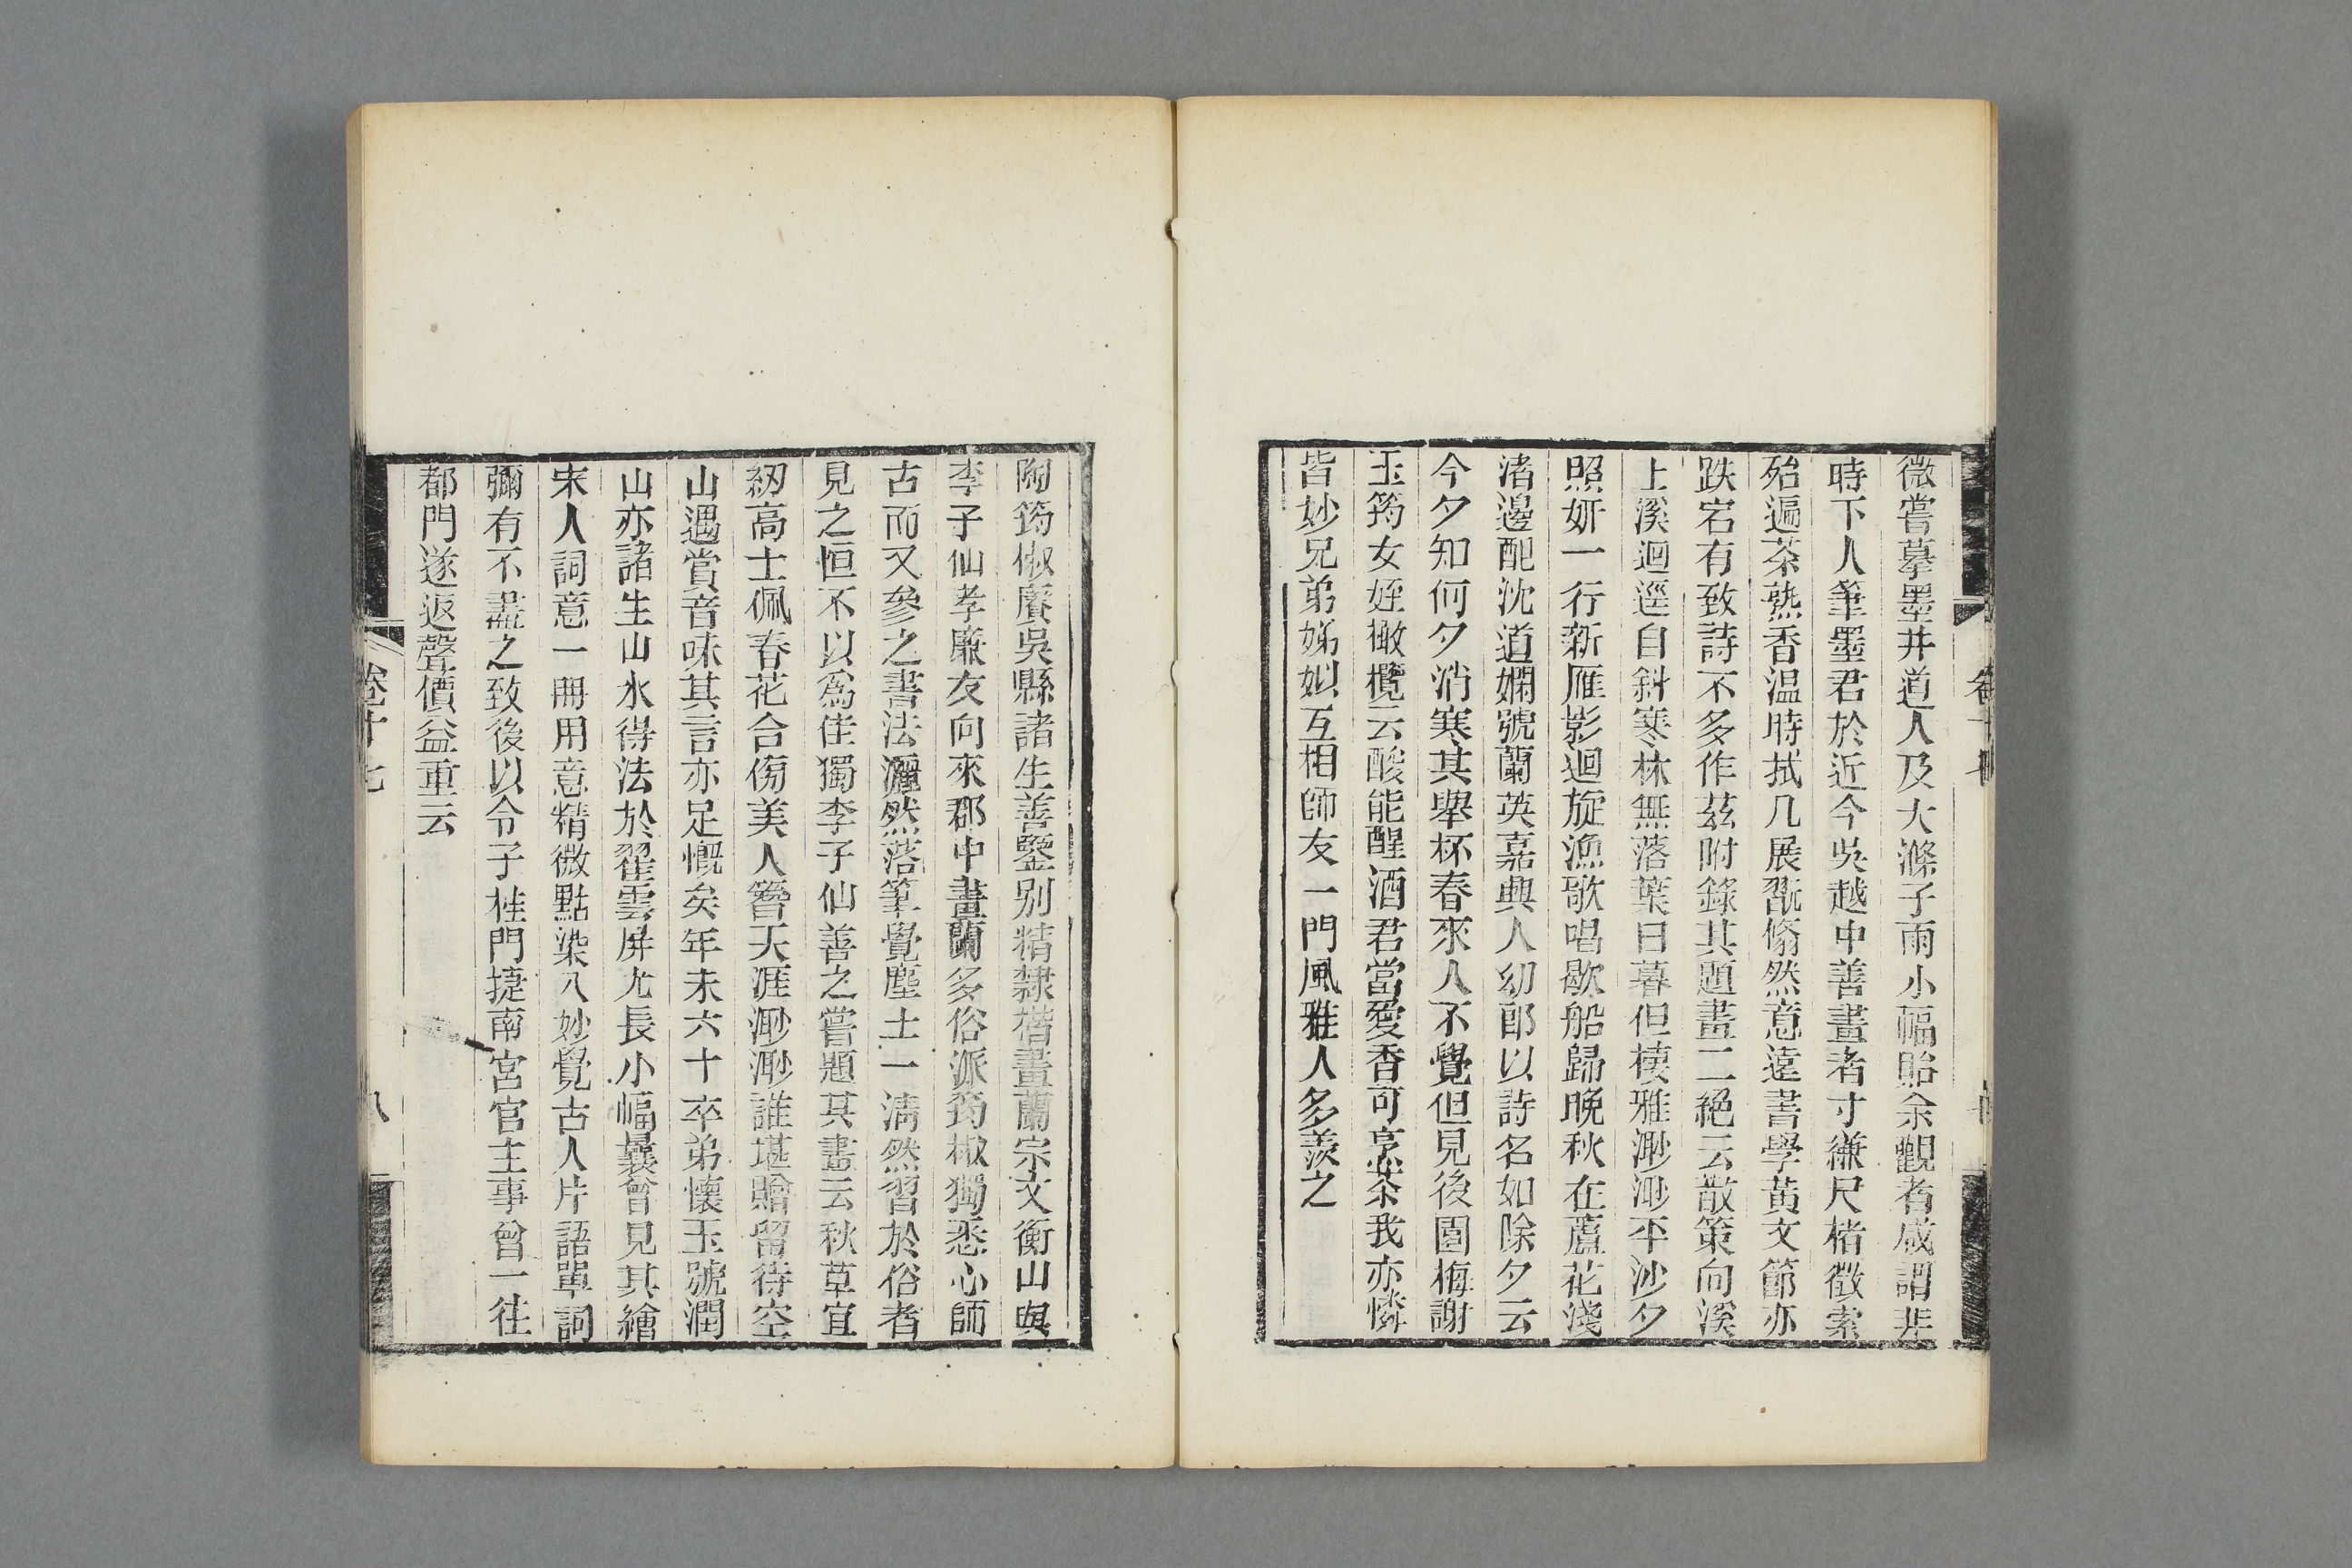 微嘗摹墨井道人及大滌子兩小幅貽余觀者咸謂非
時下人筆墨君於近今吳越中善畫者寸縑尺楮徵索
殆遍茶熟香温時拭几展翫翛然意遠書學黃文節亦
跌宕有致詩不多作茲附錄其題畫二絕云散策向溪
上溪迴逕自斜寒林無落葉日暮但棲雅渺渺平沙夕
照妍一行新雁影迴旋漁歌唱歇船歸晚秋在蘆花淺
渚邊配沈道嫻號蘭英嘉興人幼郎以詩名如除夕云
今夕知何夕消寒其舉杯春來人不覺但見後園梅謝
玉筠女姪橄欖云酸能醒酒君當愛香可烹茶我亦憐
皆妙兄弟娣姒互相師友一門風雅人多羨之
陶筠椒賡吳縣諸生善鑒别精隸楷畫蘭宗文衡山與
李子仙孝廉友向來郡中畫蘭多俗派筠椒獨悉心師
古而又參之書法灑然落筆覺塵土一淸然習於俗者
見之恒不以為佳獨李子仙善之嘗題其畫云秋草宜
紉高士佩春花合傍美人簪天涯渺渺誰堪贈留待空
山遇賞音味其言亦足慨矣年未六十卒弟懷玉號潤
山亦諸生山水得法於翟雲屏尤長小幅曩曾見其繪
宋人詞意一冊用意精微點染入妙覺古人片語單詞
彌有不盡之致後以令子桂門捷南宮官主事曾一往
都門遂返聲價益重云
卷十七
八